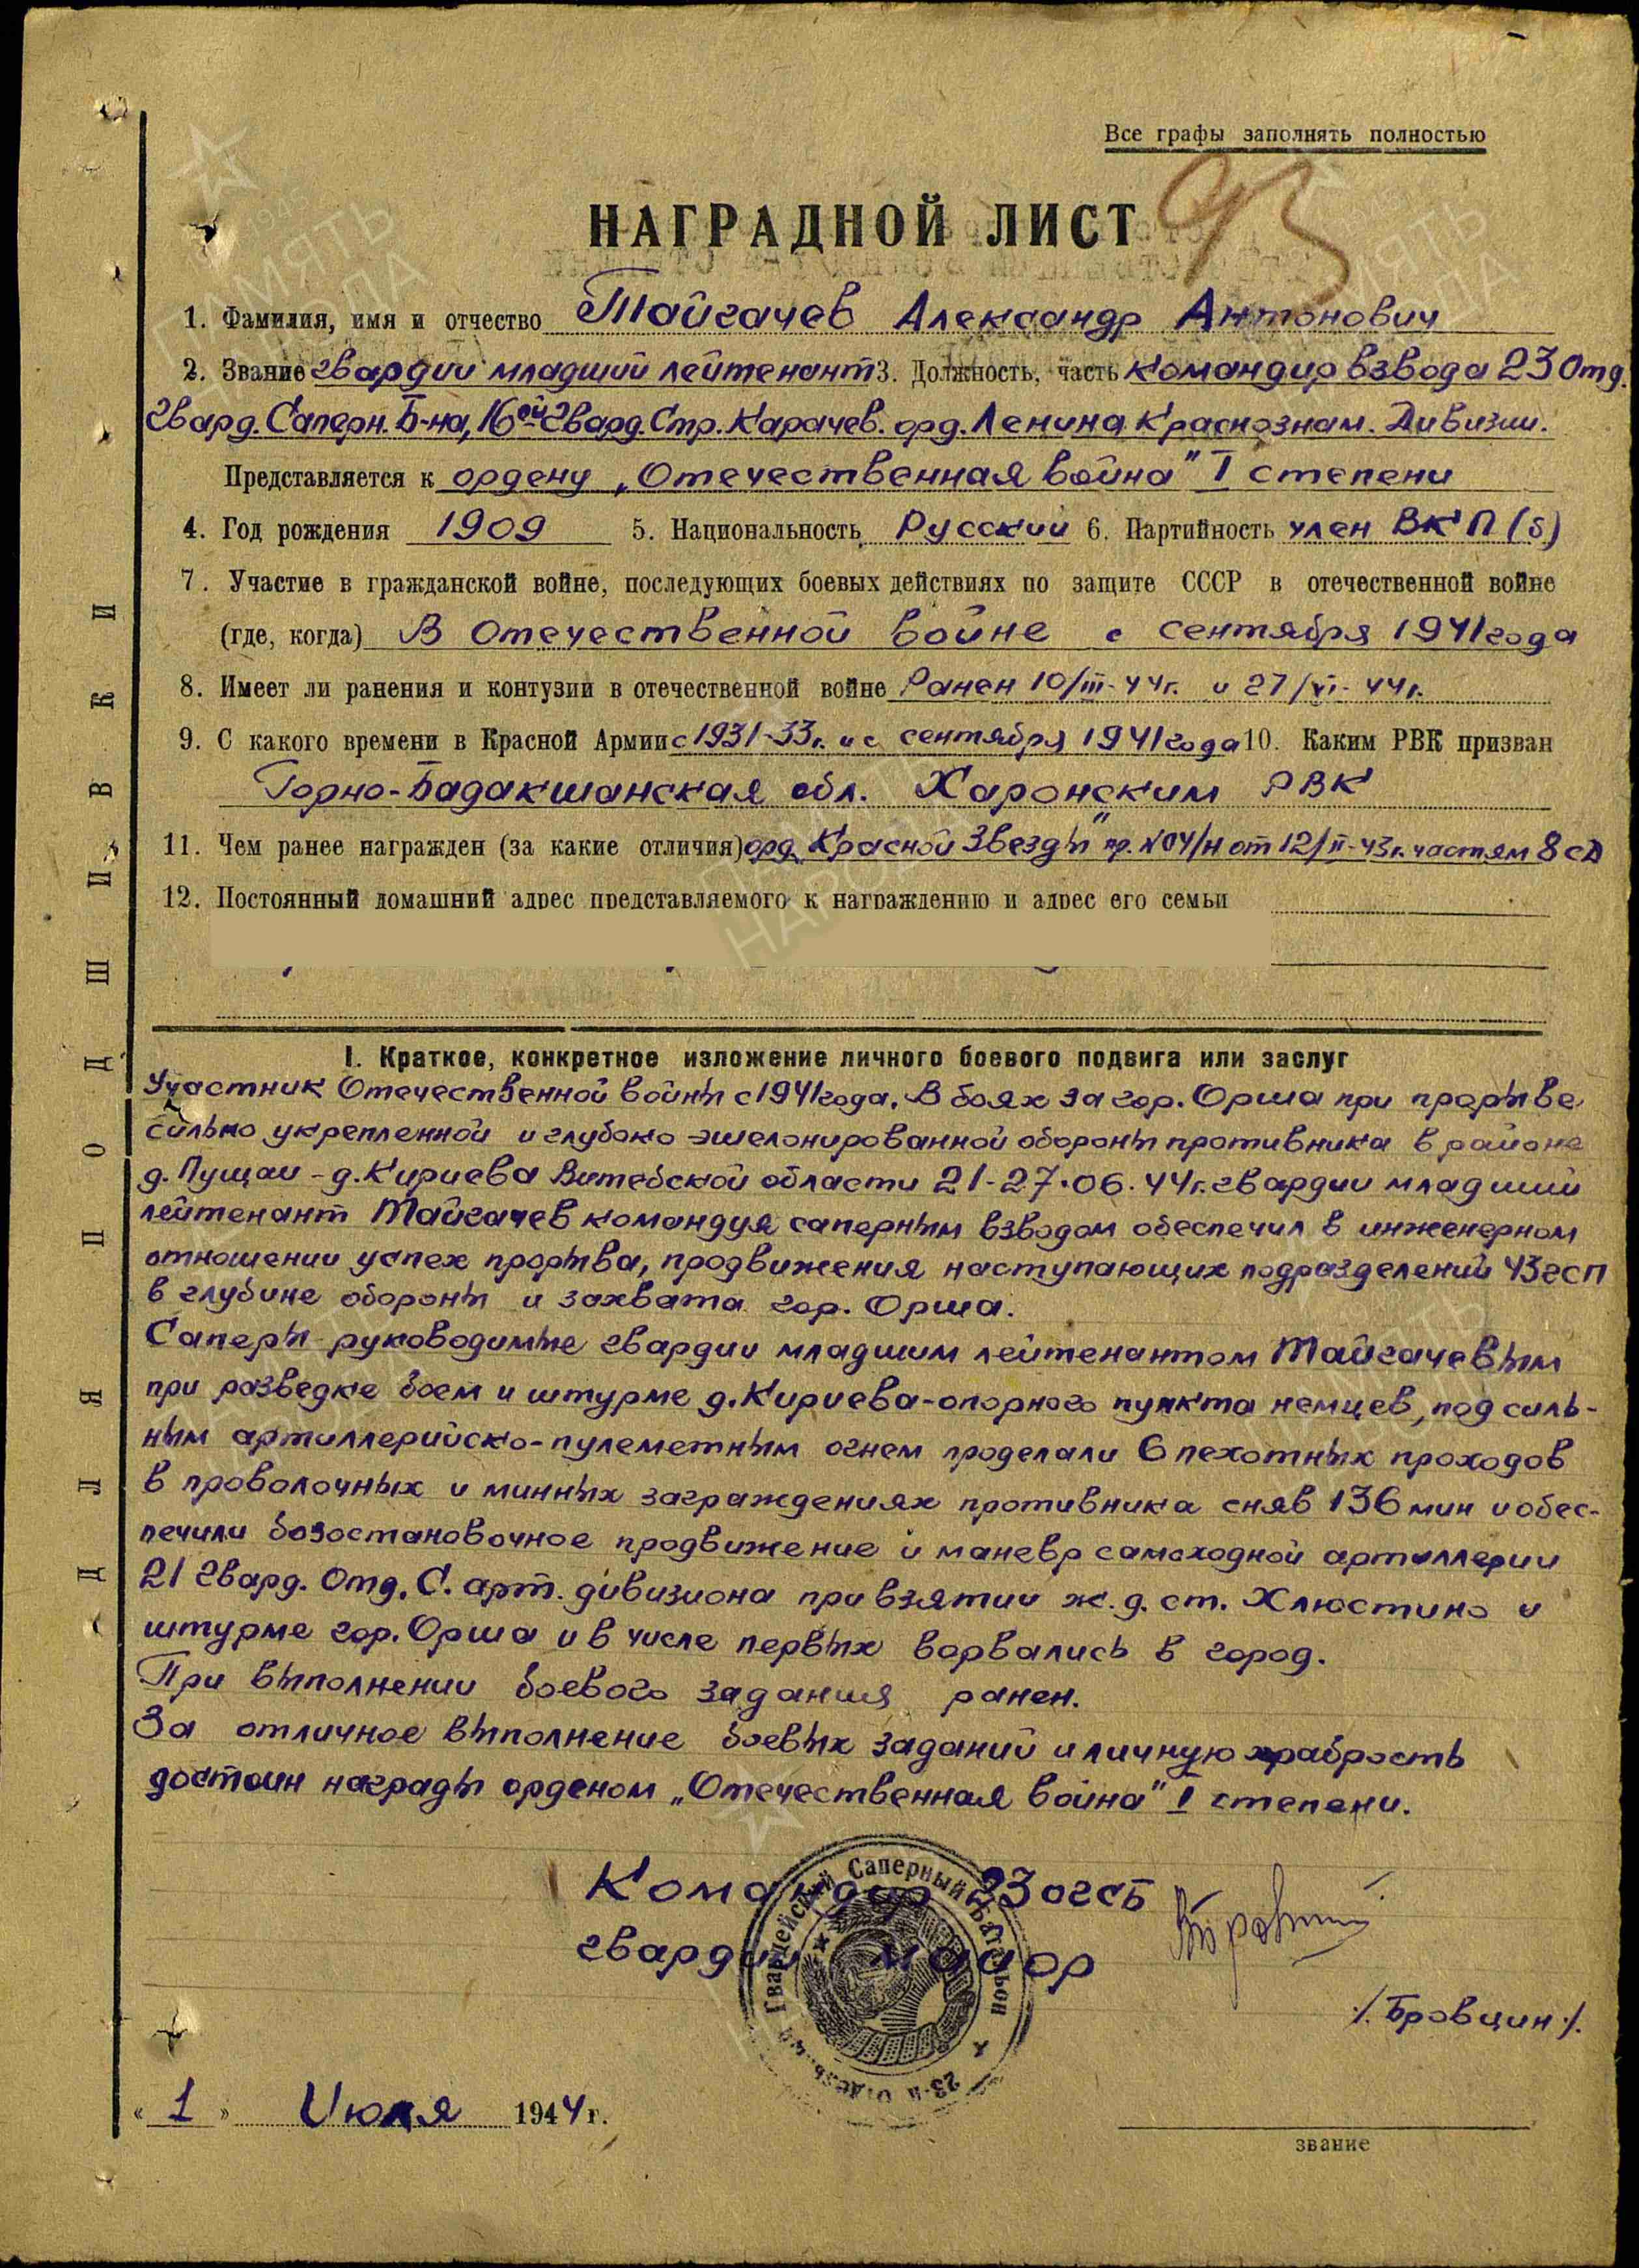 Все графы заполнять полностью
93
НАГРАДНОЙ ЛИСТ
1. Фамилия, имя и отчество Тайгачев Александр Антонович
2. Звание гвардии младший лейтенант 3. Должность, часть командир взвода 23 Отд.
Гвард. Саперн. Б-на, 16ой Гвард. Стр. Карачев. орд. Ленина Краснознам. Дивизии.
Представляется к ордену „Отечественная война" I степени
4. Год рождения 1909 5. Национальность Русский 6. Партийность член ВКП(б)
7. Участие в гражданской войне, последующих боевых действиях по защите СССР в отечественной войне
(где, когда) В Отечественной войне с сентября 1941 года
8. Имеет ли ранения и контузии в отечественной войне Ранен 10/III-44г. и 27/VI-44г.
9. С какого времени в Красной Армии с 1931-33г. и с сентября 1941 года 10. Каким РВК призван
Горно-Бадакшанская обл. Харонским РВК
11. Чем ранее награжден (за какие отличия) орд. „Красной Звезды" пр. №04/н от 12/II-43г. частям 8 сд
12. Постоянный домашний адрес представляемого к награждению и адрес его семьи
I. Краткое, конкретное изложение личного боевого подвига или заслуг
Участник Отечественной войны с 1941 года. В боях за гор. Орша при прорыве
сильно укрепленной и глубоко эшелонированной обороны противника в районе
д. Пущаи - д. Кириева Витебской области 21-27.06.44г. гвардии младший
лейтенант Тайгачев командуя саперным взводом обеспечил в инженерном
отношении успех прорыва, продвижения наступающих подразделений 43 гсп
в глубине обороны и захвата гор. Орша.
Саперы руководимые гвардии младшим лейтенантом Тайгачевым
при разведке боем и штурме д. Кириева-опорного пункта немцев, под силь-
ным артиллерийско-пулеметным огнем проделали 6 пехотных проходов
в проволочных и минных заграждениях противника сняв 136 мин и обес-
печили безостановочное продвижение и маневр самоходной артиллерии
21 Гвард. Отд. С. арт. дивизиона при взятии ж.д. ст. Хлюстино и
штурме гор. Орша и в числе первых ворвались в город.
При выполнении боевого задания ранен.
За отличное выполнение боевых заданий и личную храбрость
достоин награды орденом „Отечественная война" I степени.
Командир 23 огсб
гвардии майор
/. Бровцин /.
Гвардейский Саперный Батальон
23-й Отдельный
« 1 » Июля 1944 г.
звание
ДЛЯ ПОДШИВКИ
ПАМЯТЬ НАРОДА